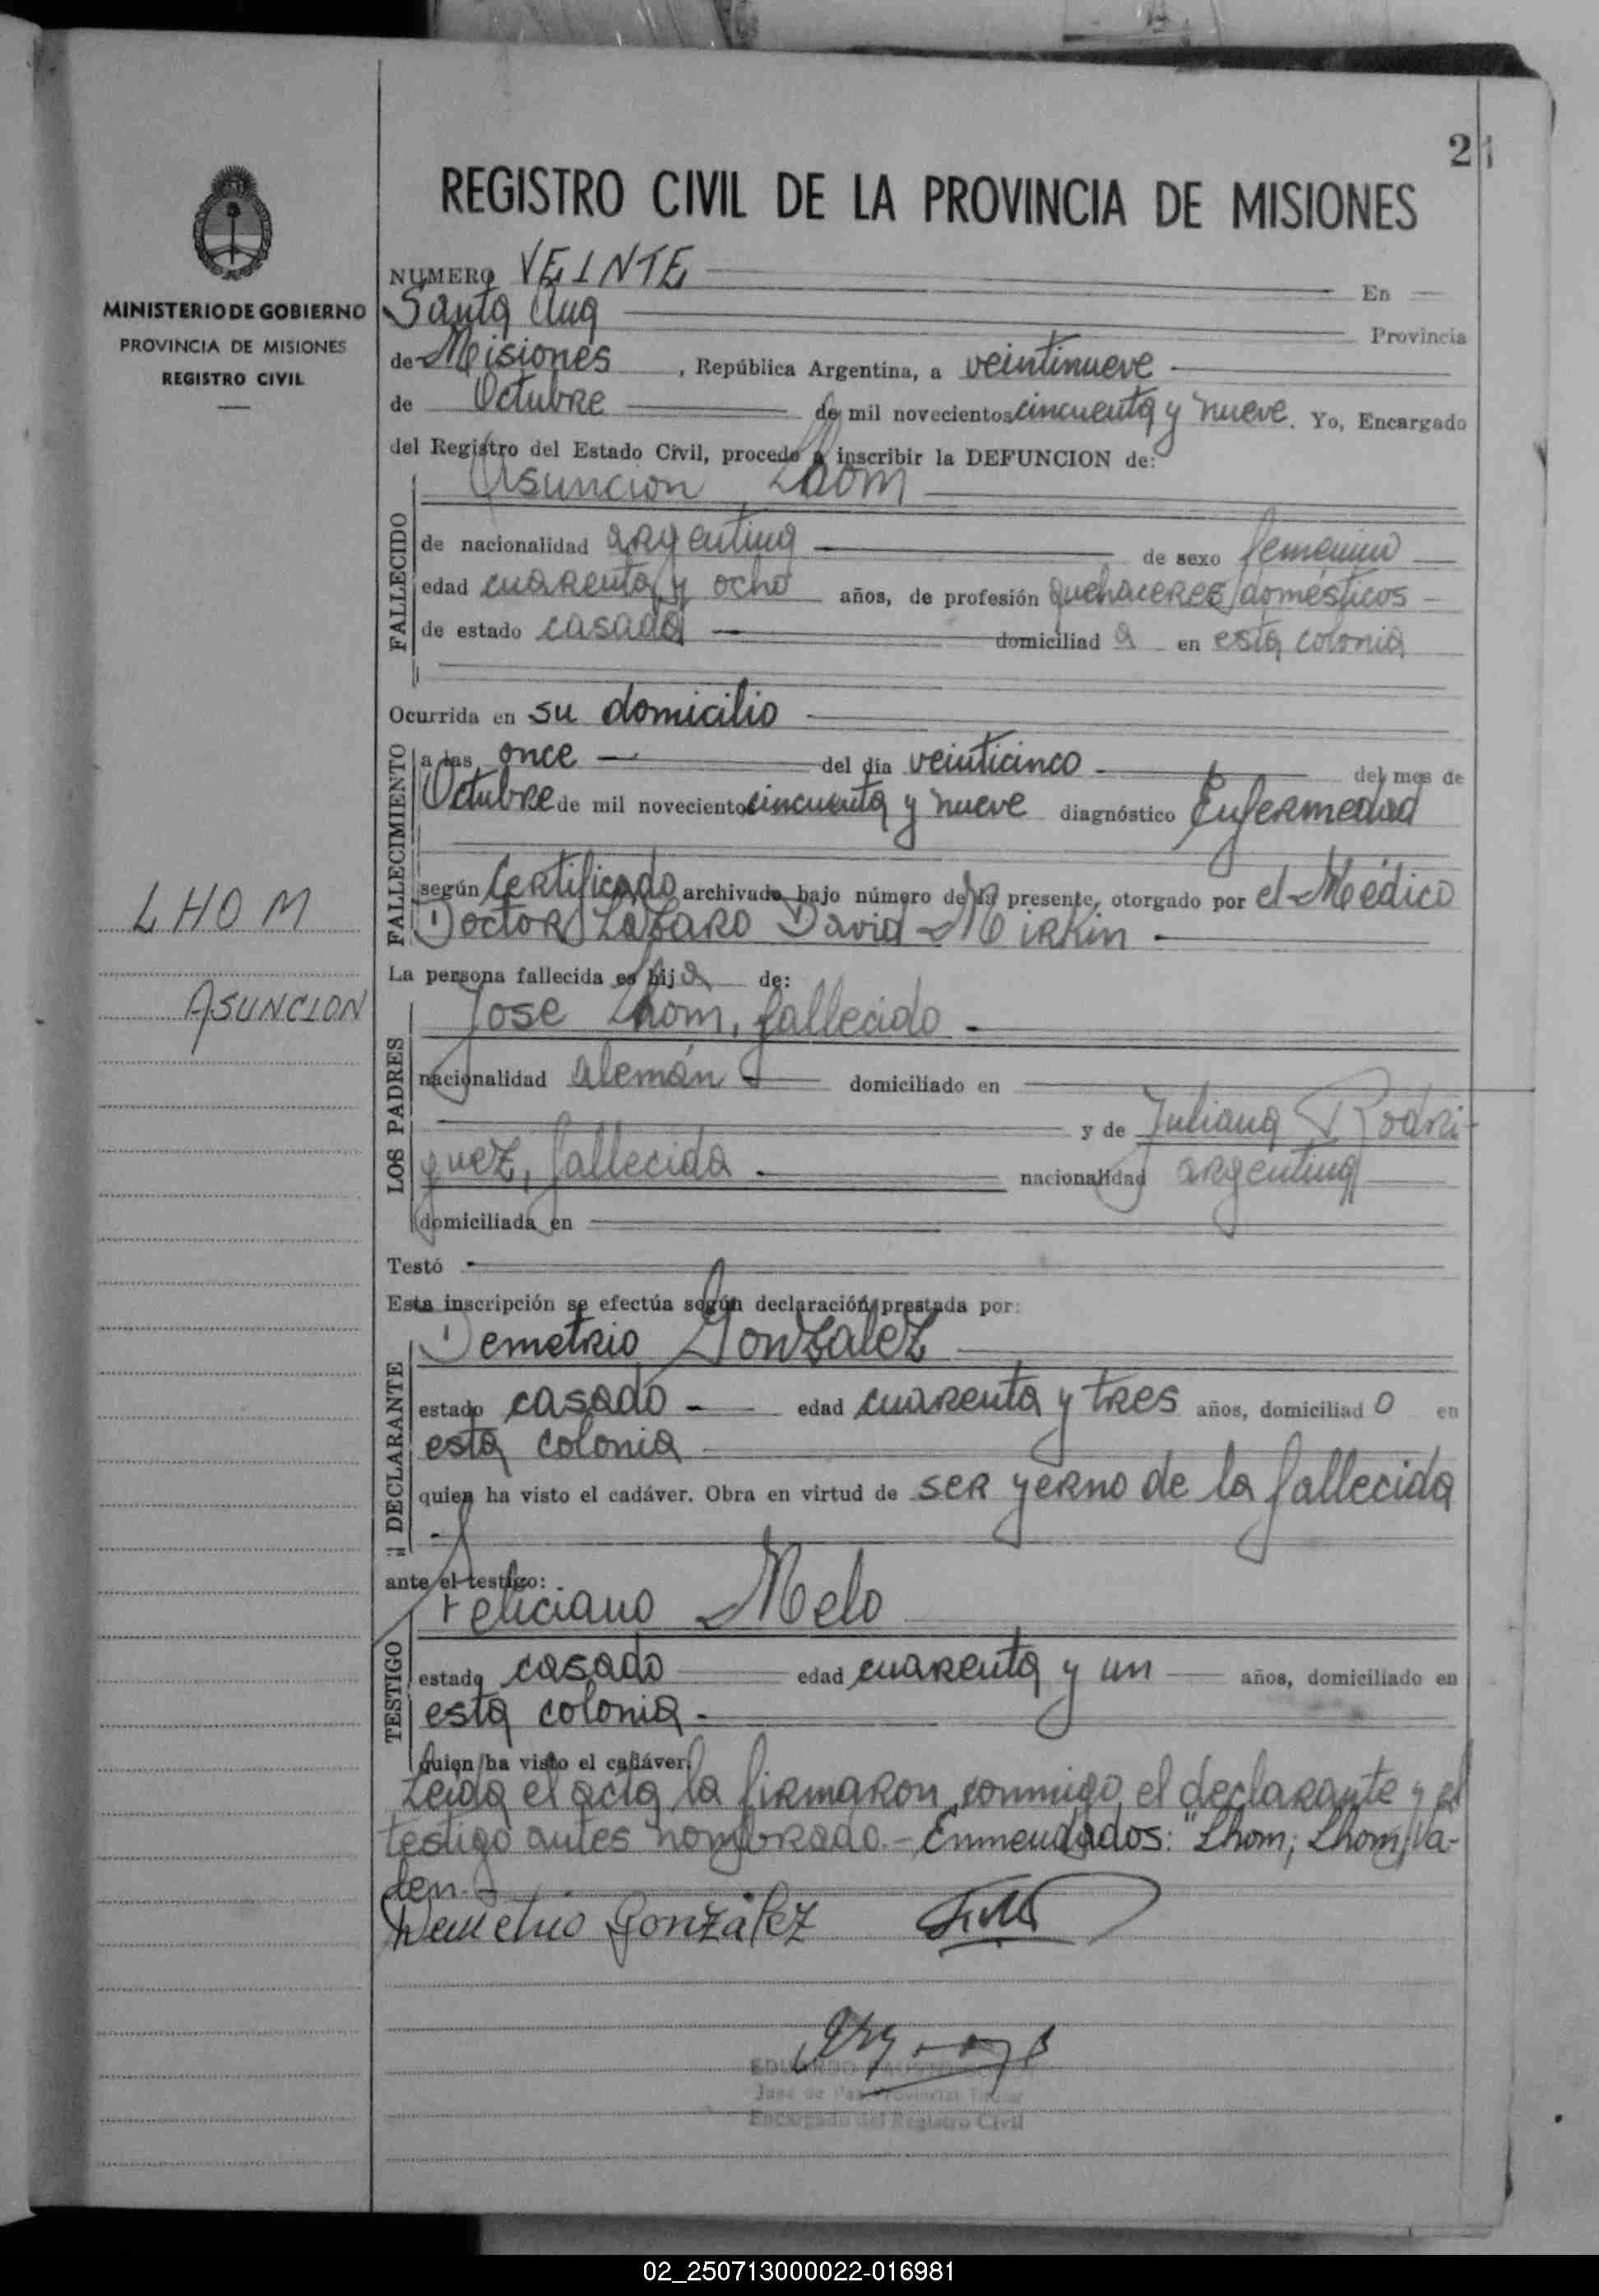 21
REGISTRO CIVIL DE LA PROVINCIA DE MISIONES
MINISTERIO DE GOBIERNO
PROVINCIA DE MISIONES
REGISTRO CIVIL
NUMERO VEINTE En
Santa Ana Provincia
de Misiones, República Argentina, a veintinueve
de Octubre de mil novecientos cincuenta y nueve. Yo, Encargado
del Registro del Estado Civil, procedo a inscribir la DEFUNCION de:
Asuncion Lhom
FALLECIDO
de nacionalidad argentina de sexo femenino
edad cuarenta y ocho años, de profesión quehaceres domésticos
de estado casada domiciliad a en esta colonia
Ocurrida en su domicilio
FALLECIMIENTO
a las once del día veinticinco del mes de
Octubre de mil novecientos cincuenta y nueve diagnóstico Enfermedad
según Certificado archivado bajo número de la presente, otorgado por el Médico
Doctor Lazaro David Mirkin
LHOM
ASUNCION
La persona fallecida es hij a de:
Jose Lhom, fallecido
LOS PADRES
nacionalidad alemán domiciliado en
y de Juliana Rodri-
guez, fallecida nacionalidad argentina
domiciliada en
Testó
Esta inscripción se efectúa según declaración prestada por:
Demetrio Gonzalez
DECLARANTE
estado casado edad cuarenta y tres años, domiciliad o en
esta colonia
quien ha visto el cadáver. Obra en virtud de ser yerno de la fallecida
ante el testigo:
Feliciano Melo
TESTIGO
estado casado edad cuarenta y un años, domiciliado en
esta colonia
quien ha visto el cadáver.
Leida el acta la firmaron conmigo el declarante y el
testigo antes nombrado.- Enmendados: "Lhom; Lhom, Va-
len.-
Demetrio González
EDUARDO
Juez de Paz Provincial Titular
Encargado del Registro Civil
02_250713000022-016981